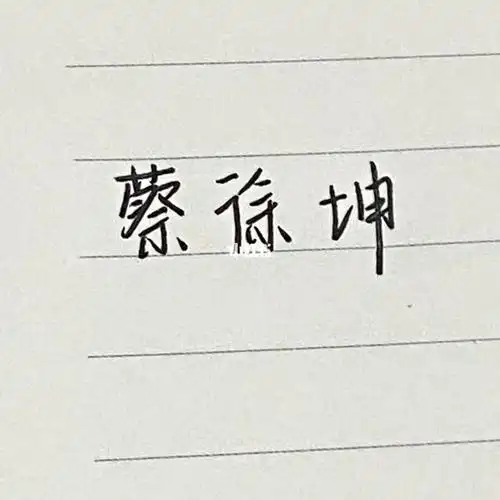 蔡徐坤